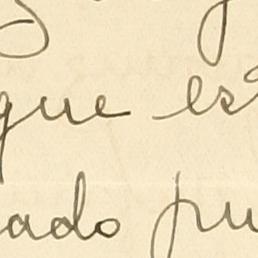 que es
ado pu